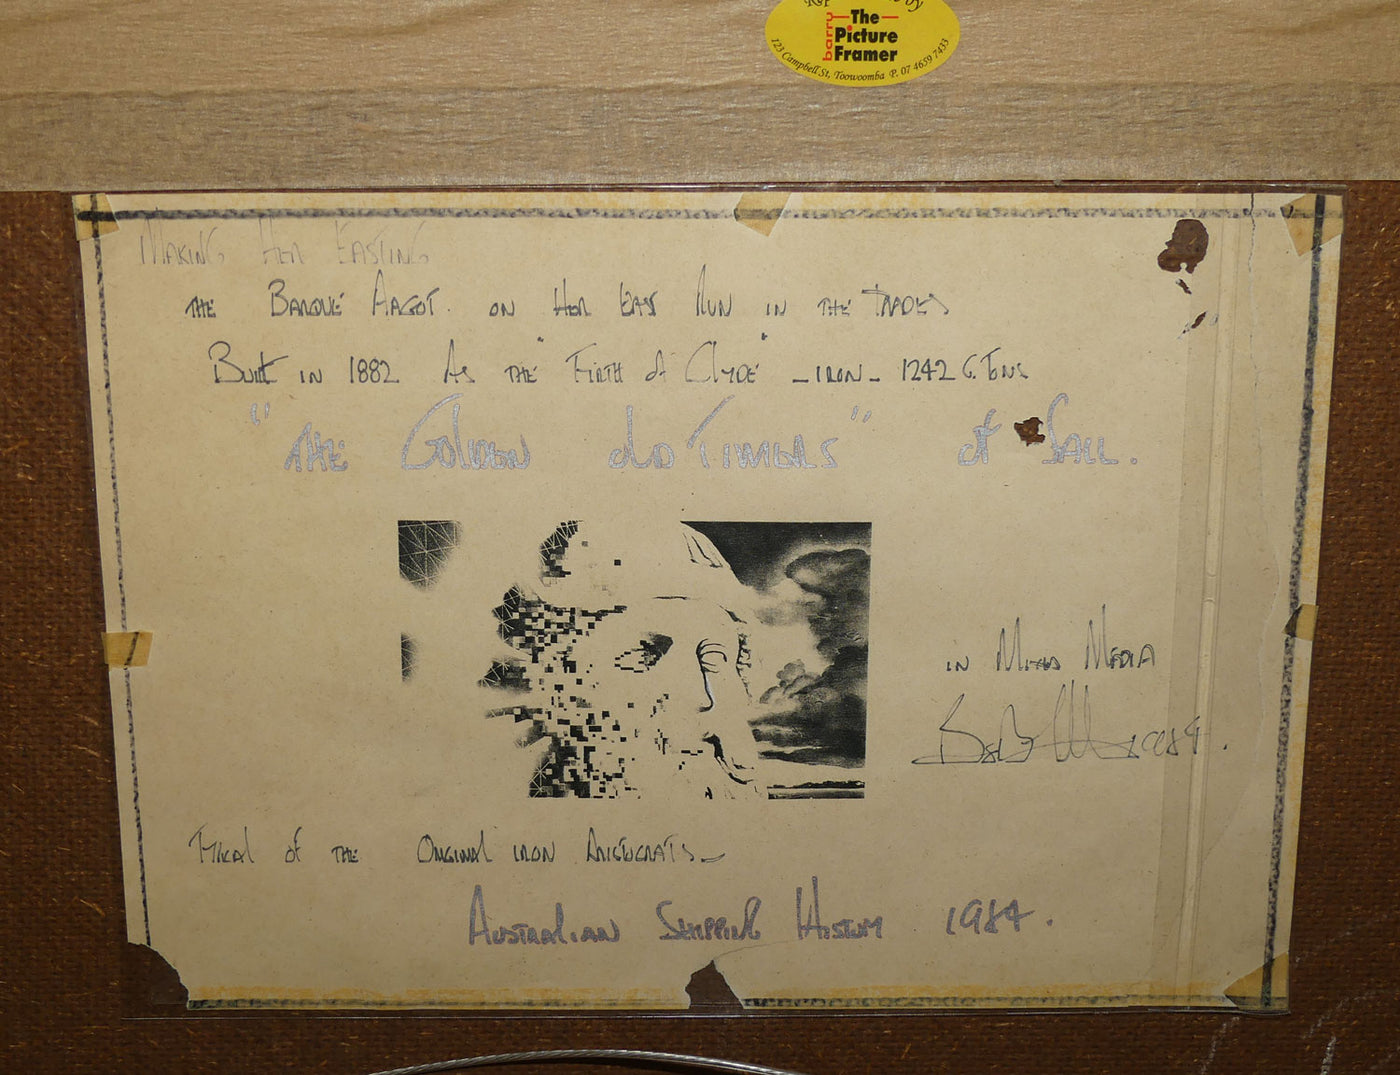 by
barry
The
Picture
Framer
123 Campbell St, Toowoomba P. 07 4659 7433
MAKING HER EASTING
THE BARQUE ARGOT. ON HER EAST RUN IN THE TRADES
Built IN 1882 AS THE "FIRTH of Clyde" - IRON - 1242 G. TONS
"THE GOLDEN OLD TIMERS" of SAIL.
IN MIXED MEDIA
TYPICAL OF THE ORIGINAL IRON ARISTOCRATS -
AUSTRALIAN SHIPPING 1984.